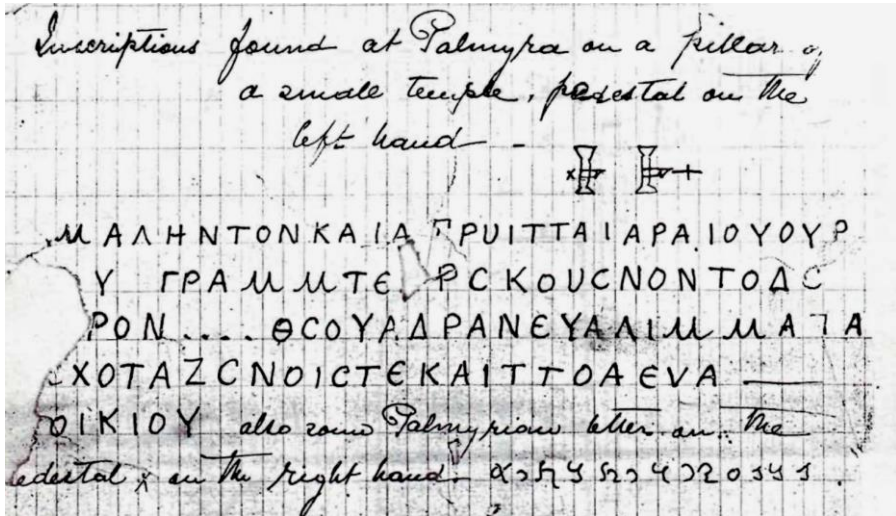 Inscriptions found at Palmyra on a pillar of
a small temple, pedestal on the
left hand -
ΜΑΛΗΝΤΟΝΚΑΙΑ ΠΡUΙΤΤΑΙΑΡΑΙΟΥΟΥΡ
Υ ΓΡΑΜΜΤΕ ΡCΚΟUCΝΟΝΤΟΔC
ΡΟΝ.... ΘCΟΥΑΔΡΑΝΕΥΑΛΙΜΜΑΤΑ
ΧΟΤΑΖCΝΟΙCΤΕΚΑΙΤΤΟΑΕVΑ
ΟΙΚΙΟΥ also some Palmyrian letter on the
edestal x on the right hand.